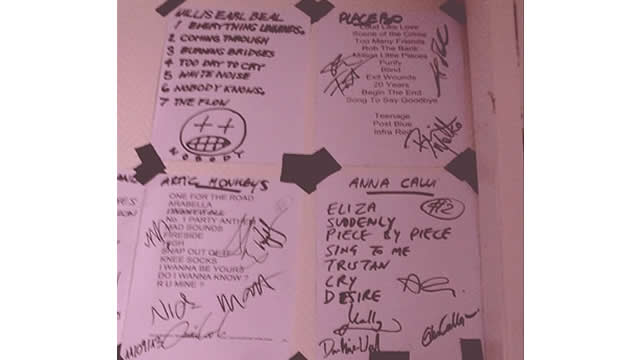 WILLIS EARL BEAL
1 EVERYTHING UNWINDS.
2 COMING THROUGH
3 BURNING BRIDGES
4 TOO DRY TO CRY
5 WHITE NOISE
6 NOBODY KNOWS.
7 THE FLOW
NOBODY
PLACEBO
Loud Like Love
Scene of the Crime
Too Many Friends
Rob The Bank
Million Little Pieces
Purify
Blind
Exit Wounds
20 Years
Begin The End
Song To Say Goodbye
Teenage
Post Blue
Infra Red
ARTIC MONKEYS
ONE FOR THE ROAD
ARABELLA
No. 1 PARTY ANTHEM
MAD SOUNDS
FIRESIDE
SNAP OUT OF IT
KNEE SOCKS
I WANNA BE YOURS
DO I WANNA KNOW ?
R U MINE ?
Nick
Matt
11/09/13
ANNA CALVI
#2
ELIZA
SUDDENLY
PIECE BY PIECE
SING TO ME
TRISTAN
CRY
DESIRE
Mally